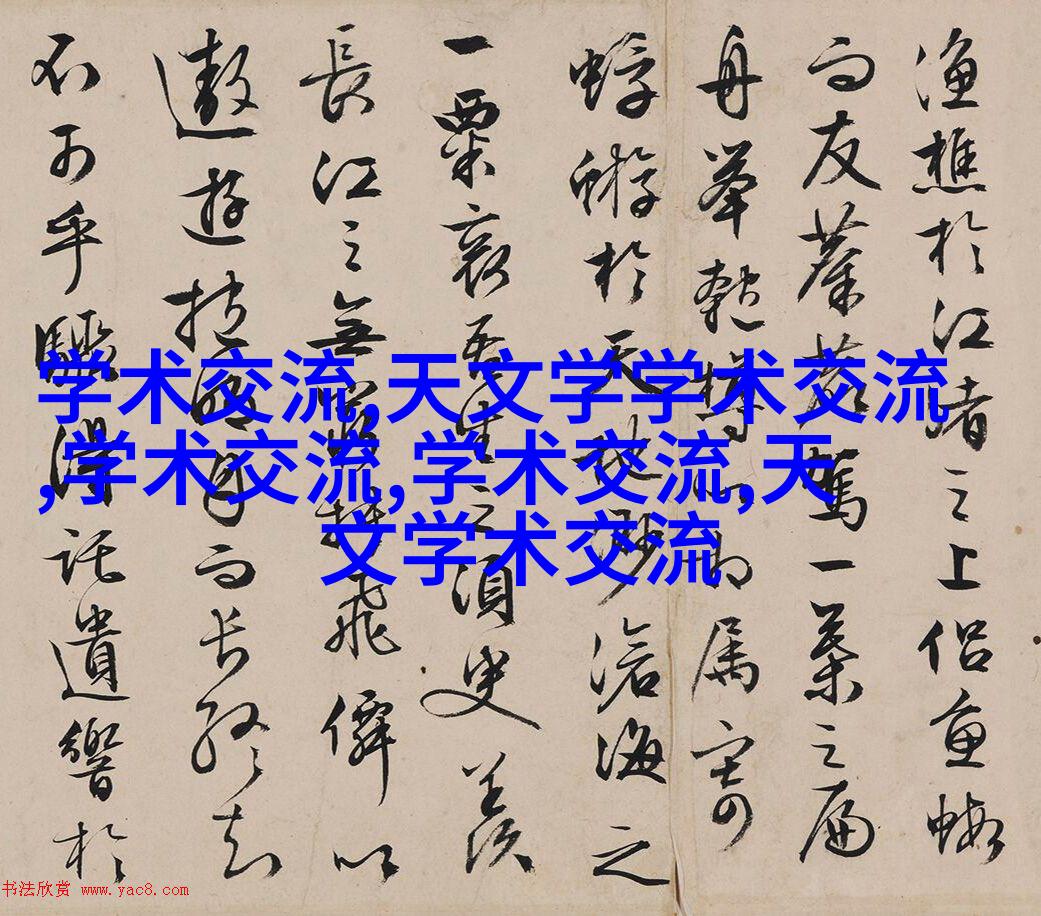 渔樵於江渚之上侣魚蝦
而友麋鹿駕一葉之扁
舟举匏樽以相属寄
蜉蝣於天地渺滄海之
一粟哀吾生之須臾羡
長江之無窮挾飛僊以
遨遊抱明月而长终知
不可乎驟得託遺響於
学术交流,天文学学术交流
,学术交流,学术交流,天
文学术交流
书法欣赏 www.yac8.com